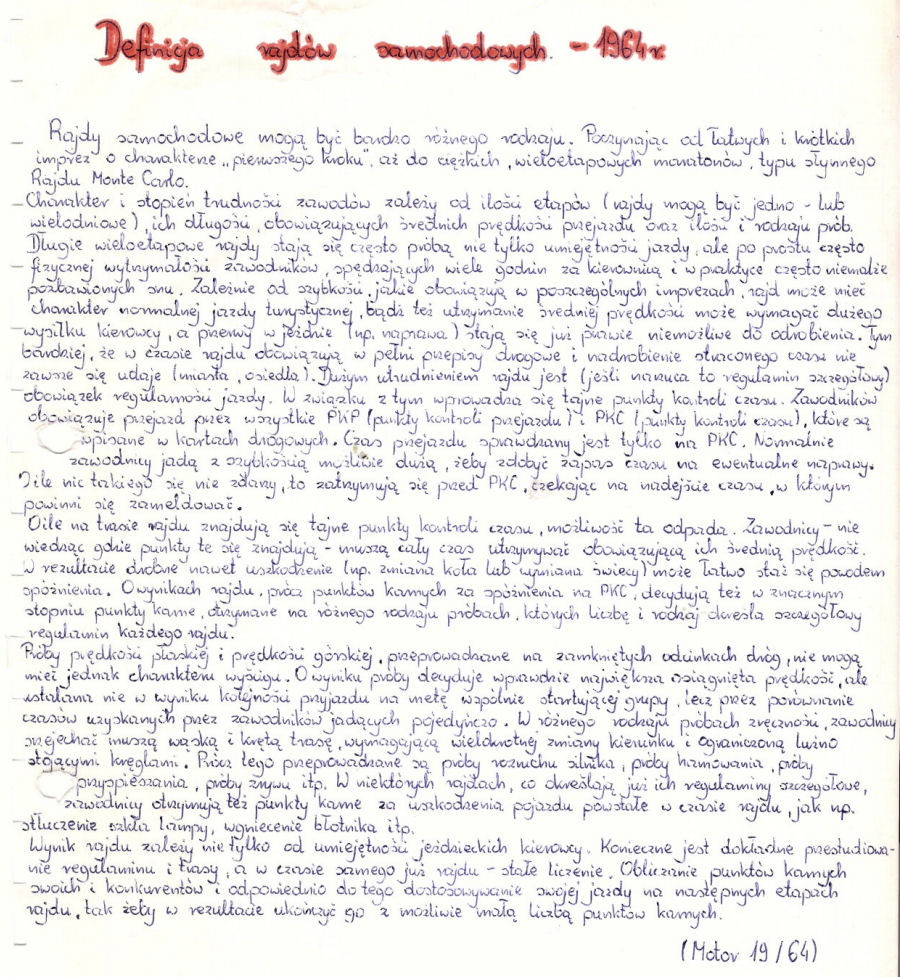 Definicja rajdów samochodowych - 1964 r.
Rajdy samochodowe mogą być bardzo różnego rodzaju. Poczynając od łatwych i krótkich
imprez o charakterze „pierwszego kroku", aż do ciężkich, wieloetapowych maratonów, typu słynnego
Rajdu Monte Carlo.
Charakter i stopień trudności zawodów zależy od ilości etapów (rajdy mogą być jedno - lub
wielodniowe), ich długości, obowiązujących średnich prędkości przejazdu oraz ilości i rodzaju prób.
Długie wieloetapowe rajdy stają się często próbą nie tylko umiejętności jazdy, ale po prostu często
fizycznej wytrzymałości zawodników, spędzających wiele godzin za kierownicą i w praktyce często niemalże
pozbawionych snu. Zależnie od szybkości, jakie obowiązują w poszczególnych imprezach, rajd może mieć
charakter normalnej jazdy turystycznej, bądź też utrzymanie średniej prędkości może wymagać dużego
wysiłku kierowcy, a przerwy w jeździe (np. naprawa) stają się już prawie niemożliwe do odrobienia. Tym
bardziej, że w czasie rajdu obowiązują w pełni przepisy drogowe i nadrobienie straconego czasu nie
zawsze się udaje (miasta, osiedla). Dużym utrudnieniem rajdu jest (jeśli narzuca to regulamin szczegółowy)
obowiązek regularności jazdy. W związku z tym wprowadza się tajne punkty kontroli czasu. Zawodników
obowiązuje przejazd przez wszystkie PKP (punkty kontroli przejazdu) i PKC (punkty kontroli czasu), które są
wpisane w kartach drogowych. Czas przejazdu sprawdzany jest tylko na PKC. Normalnie
zawodnicy jadą z szybkością możliwie dużą, żeby zdobyć zapas czasu na ewentualne naprawy.
I ile nic takiego się nie zdarzy, to zatrzymują się przed PKC, czekając na nadejście czasu, w którym
powinni się zameldować.
O ile na trasie rajdu znajdują się tajne punkty kontroli czasu, możliwość ta odpada. Zawodnicy - nie
wiedząc gdzie punkty te się znajdują - muszą cały czas utrzymywać obowiązującą ich średnią prędkość.
W rezultacie drobne nawet uszkodzenie (np. zmiana koła lub wymiana świecy) może łatwo stać się powodem
spóźnienia. O wynikach rajdu, prócz punktów karnych za spóźnienia na PKC, decydują też w znacznym
stopniu punkty karne, otrzymane na różnego rodzaju próbach, których liczbę i rodzaj określa szczegółowy
regulamin każdego rajdu.
Próby prędkości płaskiej i prędkości górskiej, przeprowadzane na zamkniętych odcinkach dróg, nie mogą
mieć jednak charakteru wyścigu. O wyniku próby decyduje wprawdzie największa osiągnięta prędkość, ale
ustalana nie w wyniku kolejności przyjazdu na metę wspólnie startującej grupy, lecz przez porównanie
czasów uzyskanych przez zawodników jadących pojedyńczo. W różnego rodzaju próbach zręczności, zawodnicy
przejechać muszą wąską i krętą trasę, wymagającą wielokrotnej zmiany kierunku i ograniczoną luźno
stojącymi kręglami. Prócz tego przeprowadzane są próby rozruchu silnika, próby hamowania, próby
przyspieszania, próby zrywu itp. W niektórych rajdach, co określają już ich regulaminy szczegółowe,
zawodnicy otrzymują też punkty karne za uszkodzenia pojazdu powstałe w czasie rajdu, jak np.
stłuczenie szkła lampy, wgniecenie błotnika itp.
Wynik rajdu zależy nie tylko od umiejętności jeździeckich kierowcy. Konieczne jest dokładne przestudiowa-
nie regulaminu i trasy, a w czasie samego już rajdu - stałe liczenie. Obliczanie punktów karnych
swoich i konkurentów i odpowiednio do tego dostosowywanie swojej jazdy na następnych etapach
rajdu, tak żeby w rezultacie ukończyć go z możliwie małą liczbą punktów karnych.
(Motor 19/64)